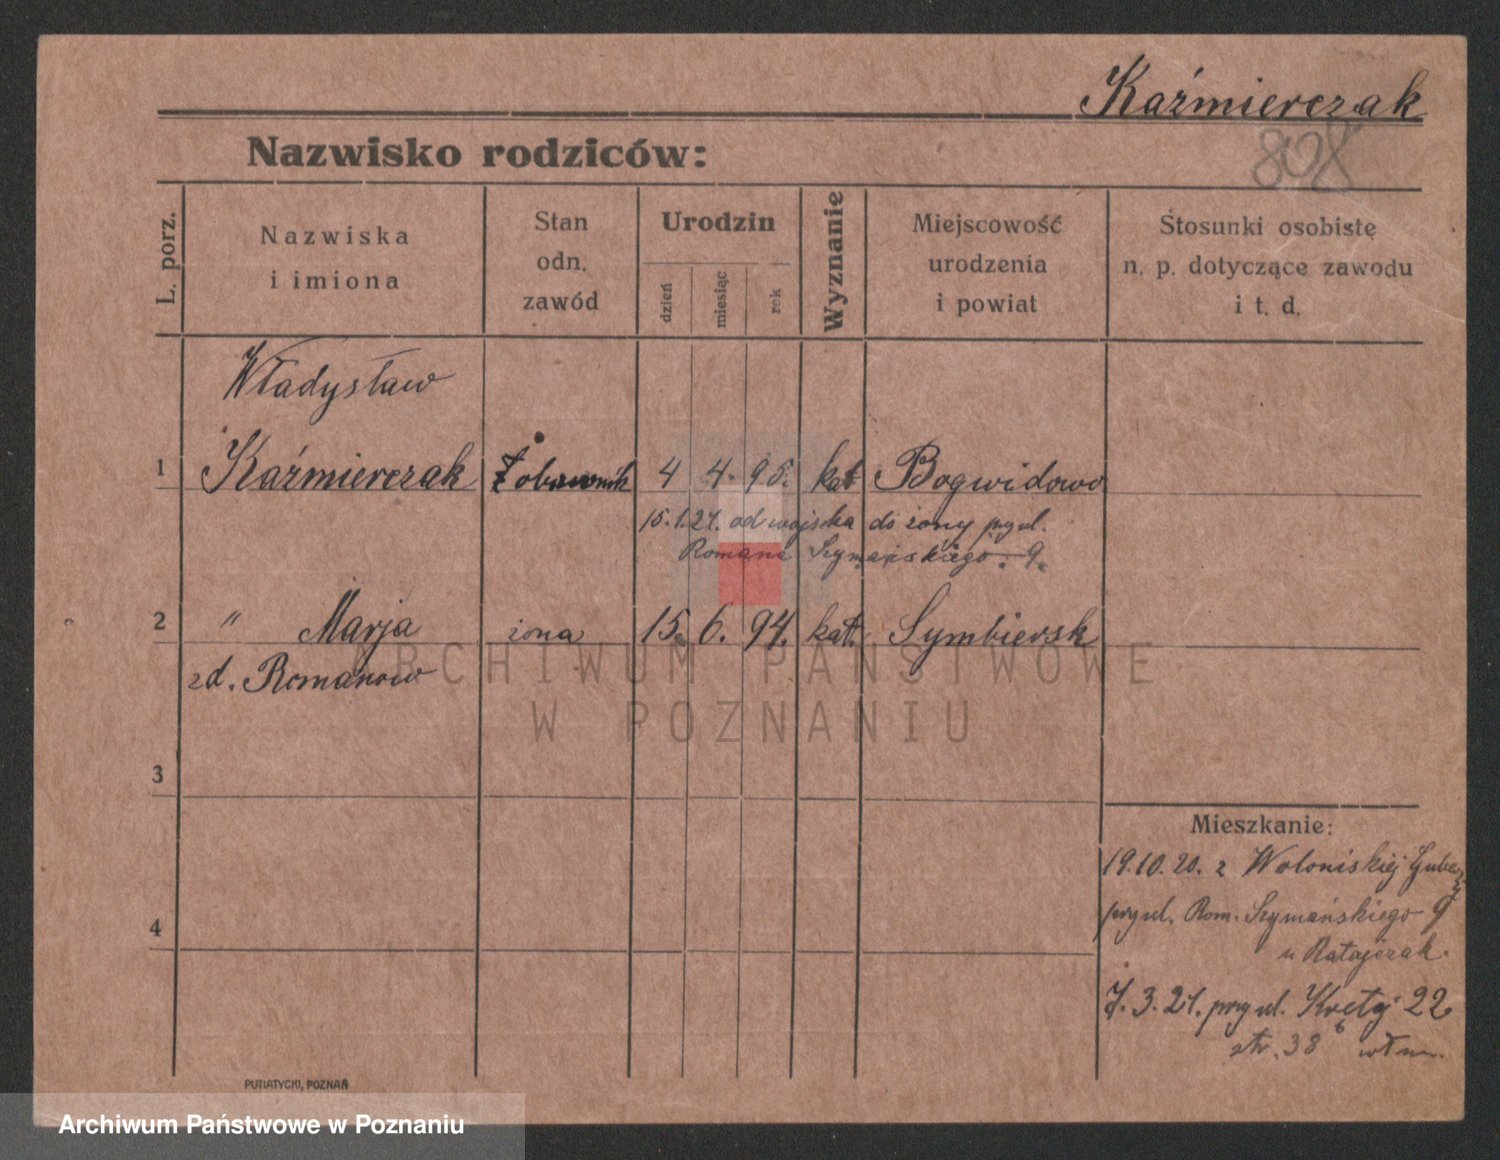 Kaźmierczak
808
Nazwisko rodziców:
L. porz.
Nazwiska
i imiona
Stan
odn.
zawód
Urodzin
dzień
miesiąc
rok
Wyznanie
Miejscowość
urodzenia
i powiat
Stosunki osobiste
n. p. dotyczące zawodu
i t. d.
Władysław
1 Kaźmierczak 4 4. 95. kat Bogwidowo
15.1.21. od wojska do żony przy ul.
Romana Szymańskiego 9.
2 " Marja żona 15. 6. 94. kat. Symbiersk
zd. Romanow
ARCHIWUM PAŃSTWOWE
W POZNANIU
3
4
Mieszkanie:
19.10.20. z
przy ul. Rom. Szymańskiego 9
u Ratajczak.
7.3.21. przy ul. Krętej 22
str. 38
PUTIATYCKI, POZNAŃ
Archiwum Państwowe w Poznaniu